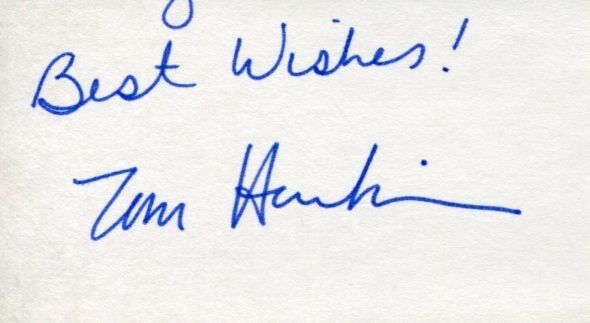 Best Wishes!
Tom Harkin